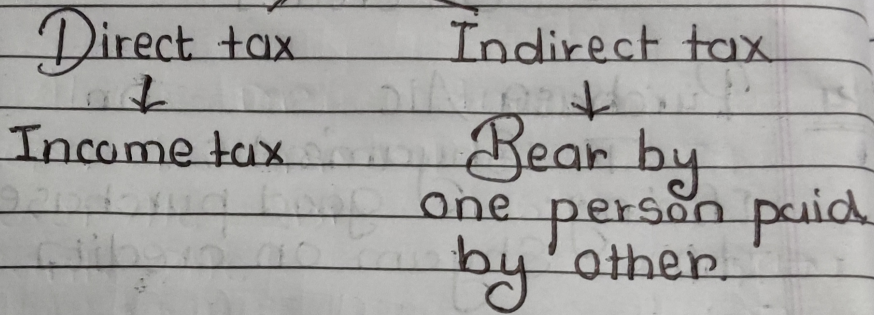 Direct tax Indirect tax
↓ ↓
Income tax Bear by
one person paid
by other.